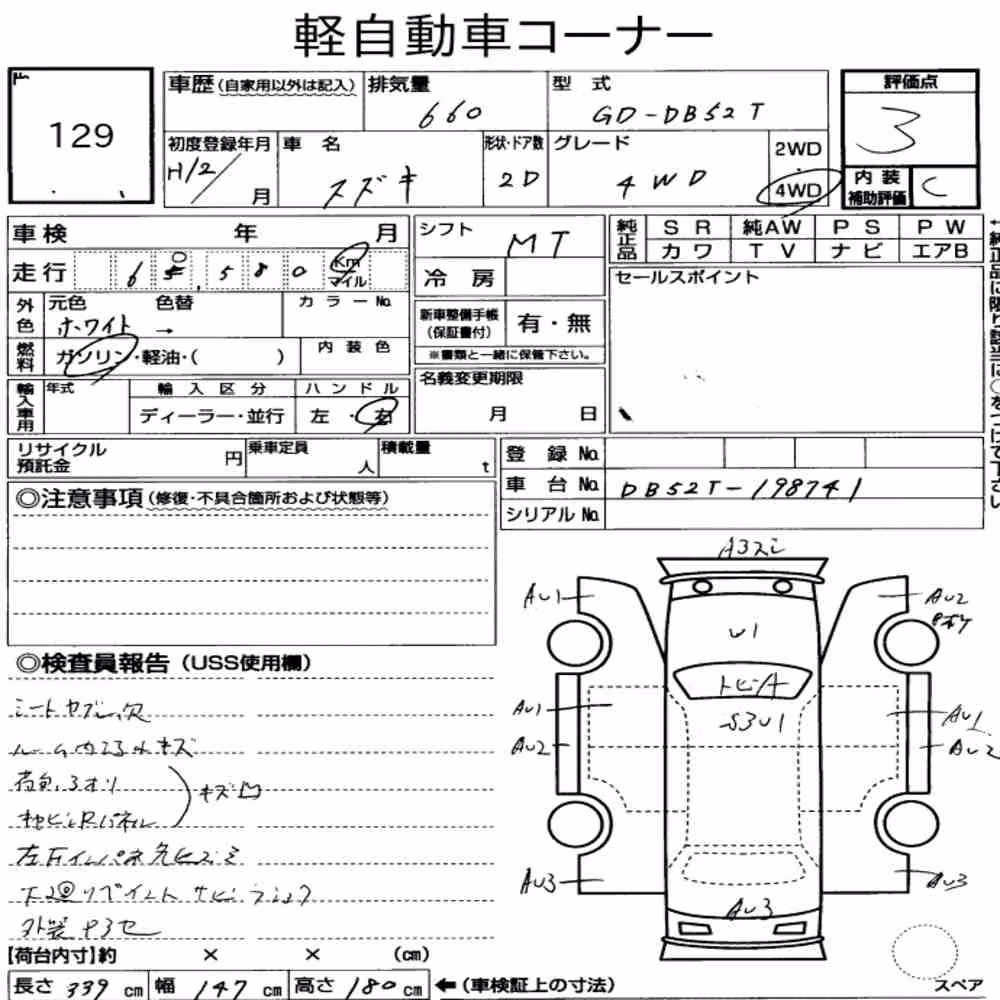 軽自動車コーナー
129
車歴(自家用以外は記入) 排気量 660 型式 GD-DB52T 評価点 3
初度登録年月 H12/ 月 車名 スズキ 形状・ドア数 2D グレード 4WD 2WD・4WD 内装補助評価 C
車検 年 月 シフト MT 純正品 SR 純AW PS PW
カワ TV ナビ エアB
走行 Km マイル 冷房 セールスポイント
外色 元色 ホワイト 色替 → カラーNo. 新車整備手帳(保証書付) 有・無
燃料 ガソリン・軽油・( ) 内装色 ※書類と一緒に保管下さい。
輸入車用 年式 輸入区分 ディーラー・並行 ハンドル 左・右 名義変更期限 月 日
リサイクル預託金 円 乗車定員 人 積載量 t 登録No.
車台No. DB52T-198741
シリアルNo.
◎注意事項(修復・不具合箇所および状態等)
A3スレ
AU1
AU2
U1
◎検査員報告(USS使用欄)
トビA
シート ヤブレ、穴
AU1
S3U1
AU1
ルーム内 キズ
AU2
AU2
荷台、3オリ
キズ凹
下回リペイント サビ
AU3
AU3
AU3
【荷台内寸】約 × × (cm)
長さ 339 cm 幅 147 cm 高さ 180 cm ←(車検証上の寸法)
スペア